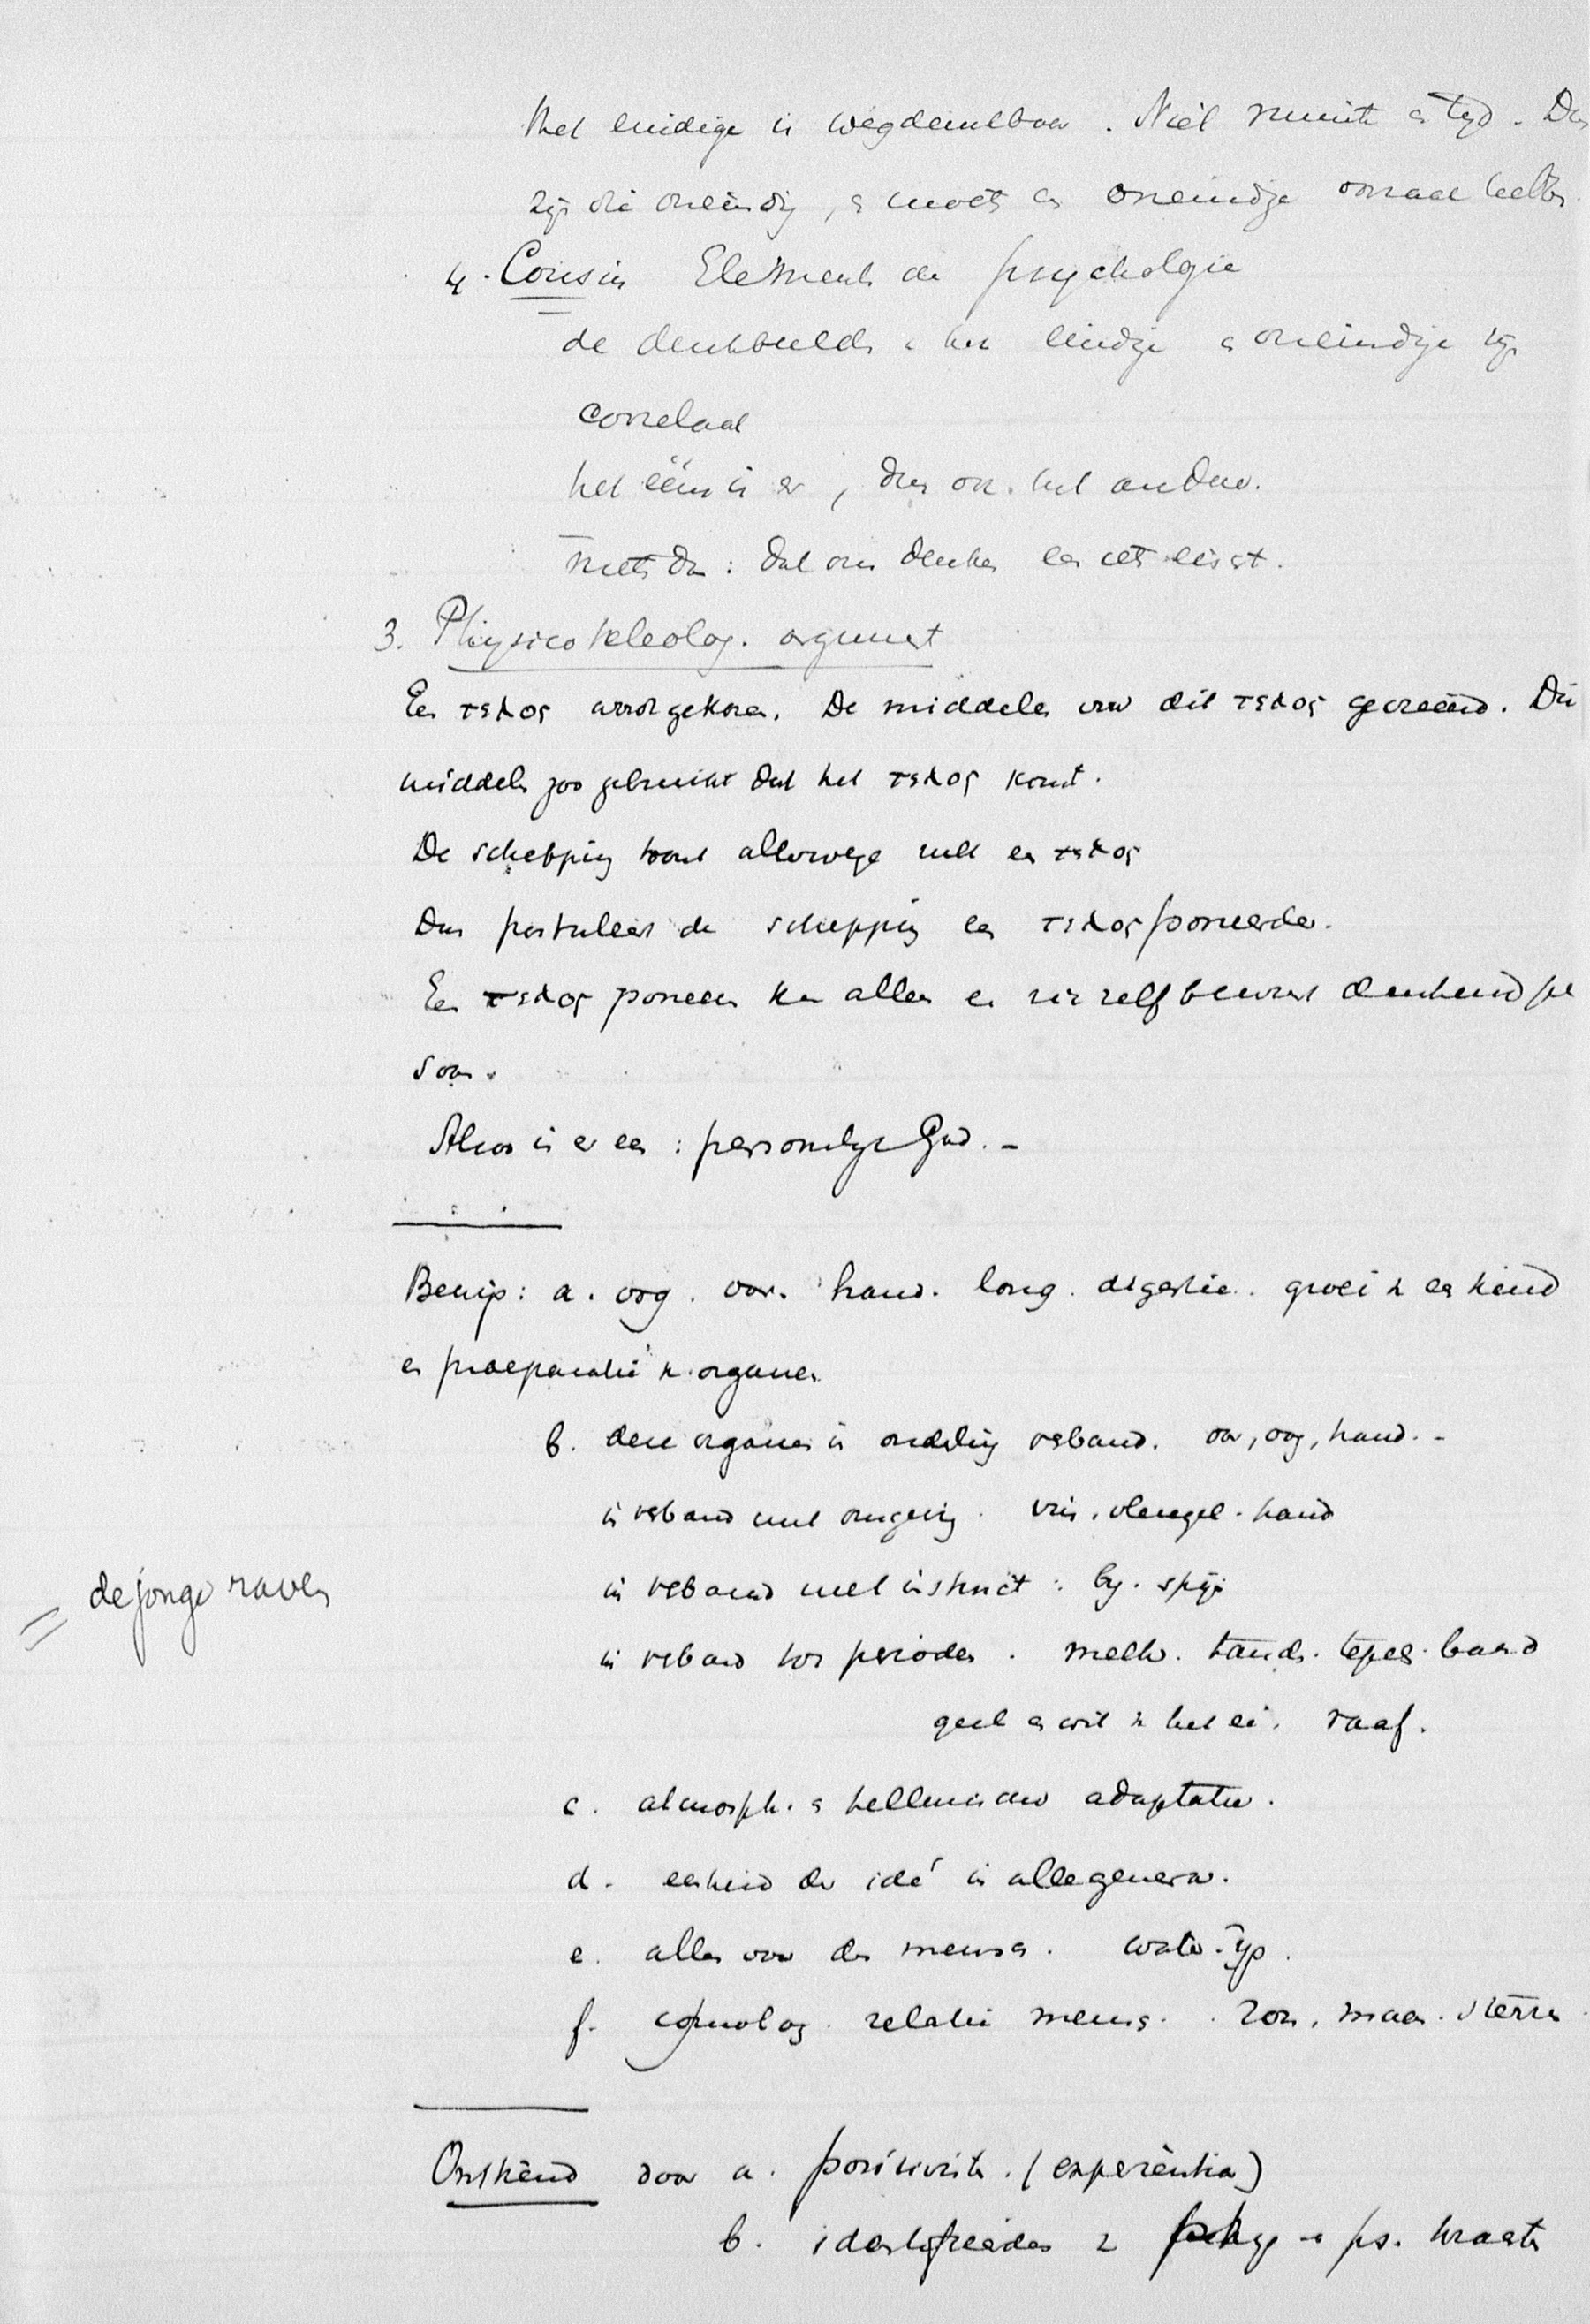 Het eindige is wegdenkbaar. Niet ruimte en tijd. Dus
zijn die oneindig, en moet en oneindige oorzaak hebben.
4. Cousin Elements de psychologie
de denkbeelden het eindige en oneindige zijn
correlaat
het één is er, dus ook het andere.
niets dan: dat ons denken een iets eischt.
3. Physicoteleolog. argument
Een τελος voorgekomen. De middelen voor dit τελος gecreëerd. Die
middelen zoo gebruikt dat het τελος komt.
De schepping toont allerwege zulk een τελος
Dus postuleert de schepping een τελοςponeerder.
Een τελος poneeren kan alleen een zich zelf bewust denkend per
soon.
Alzoo is er een: persoonlijk God. -
Bewijs: a. oog. oor. hand. long. digestie. groei v. een kind
en praeparatie v. organen
b. deze organen in onderling verband. oor, oog, hand. -
in verband met omgeving. vin. vleugel. hand
in verband met instinct: bij. spin
in verband tot perioden. melk. tands. tepel. baard
geel en wit v. het ei. raaf.
de jonge raven
c. atmosph. en adaptatie.
d. eenheid der idé in alle genera.
e. alles voor den mensch. water. ijs.
f. cosmolog. relatie mensch. zon. maan. sterren
Ontkend door a. positivisten. (experientia)
b. identifieeren v. en ps. kracht